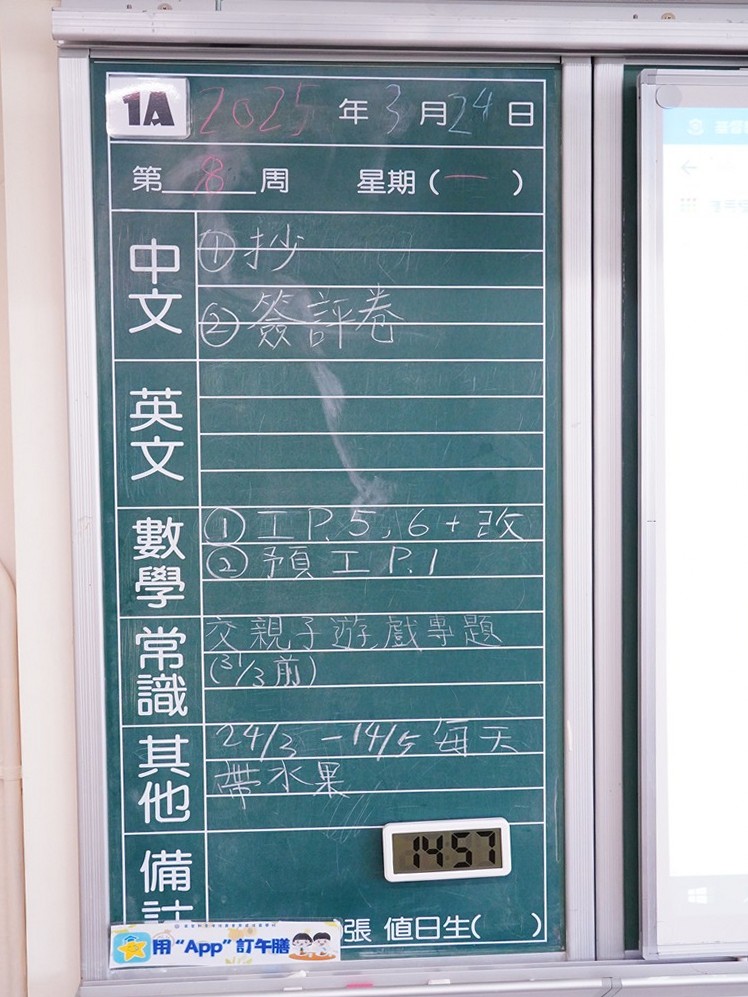 1A 2025年3月24日
第8周 星期(一)
中文
①抄
②簽評卷
英文
數學
①工P.5,6+改
②預工P.1
常識
交親子遊戲專題
(31/3前)
其他
24/3-14/5每天
帶水果
備註
14:57
用“App”訂午膳
張 值日生( )